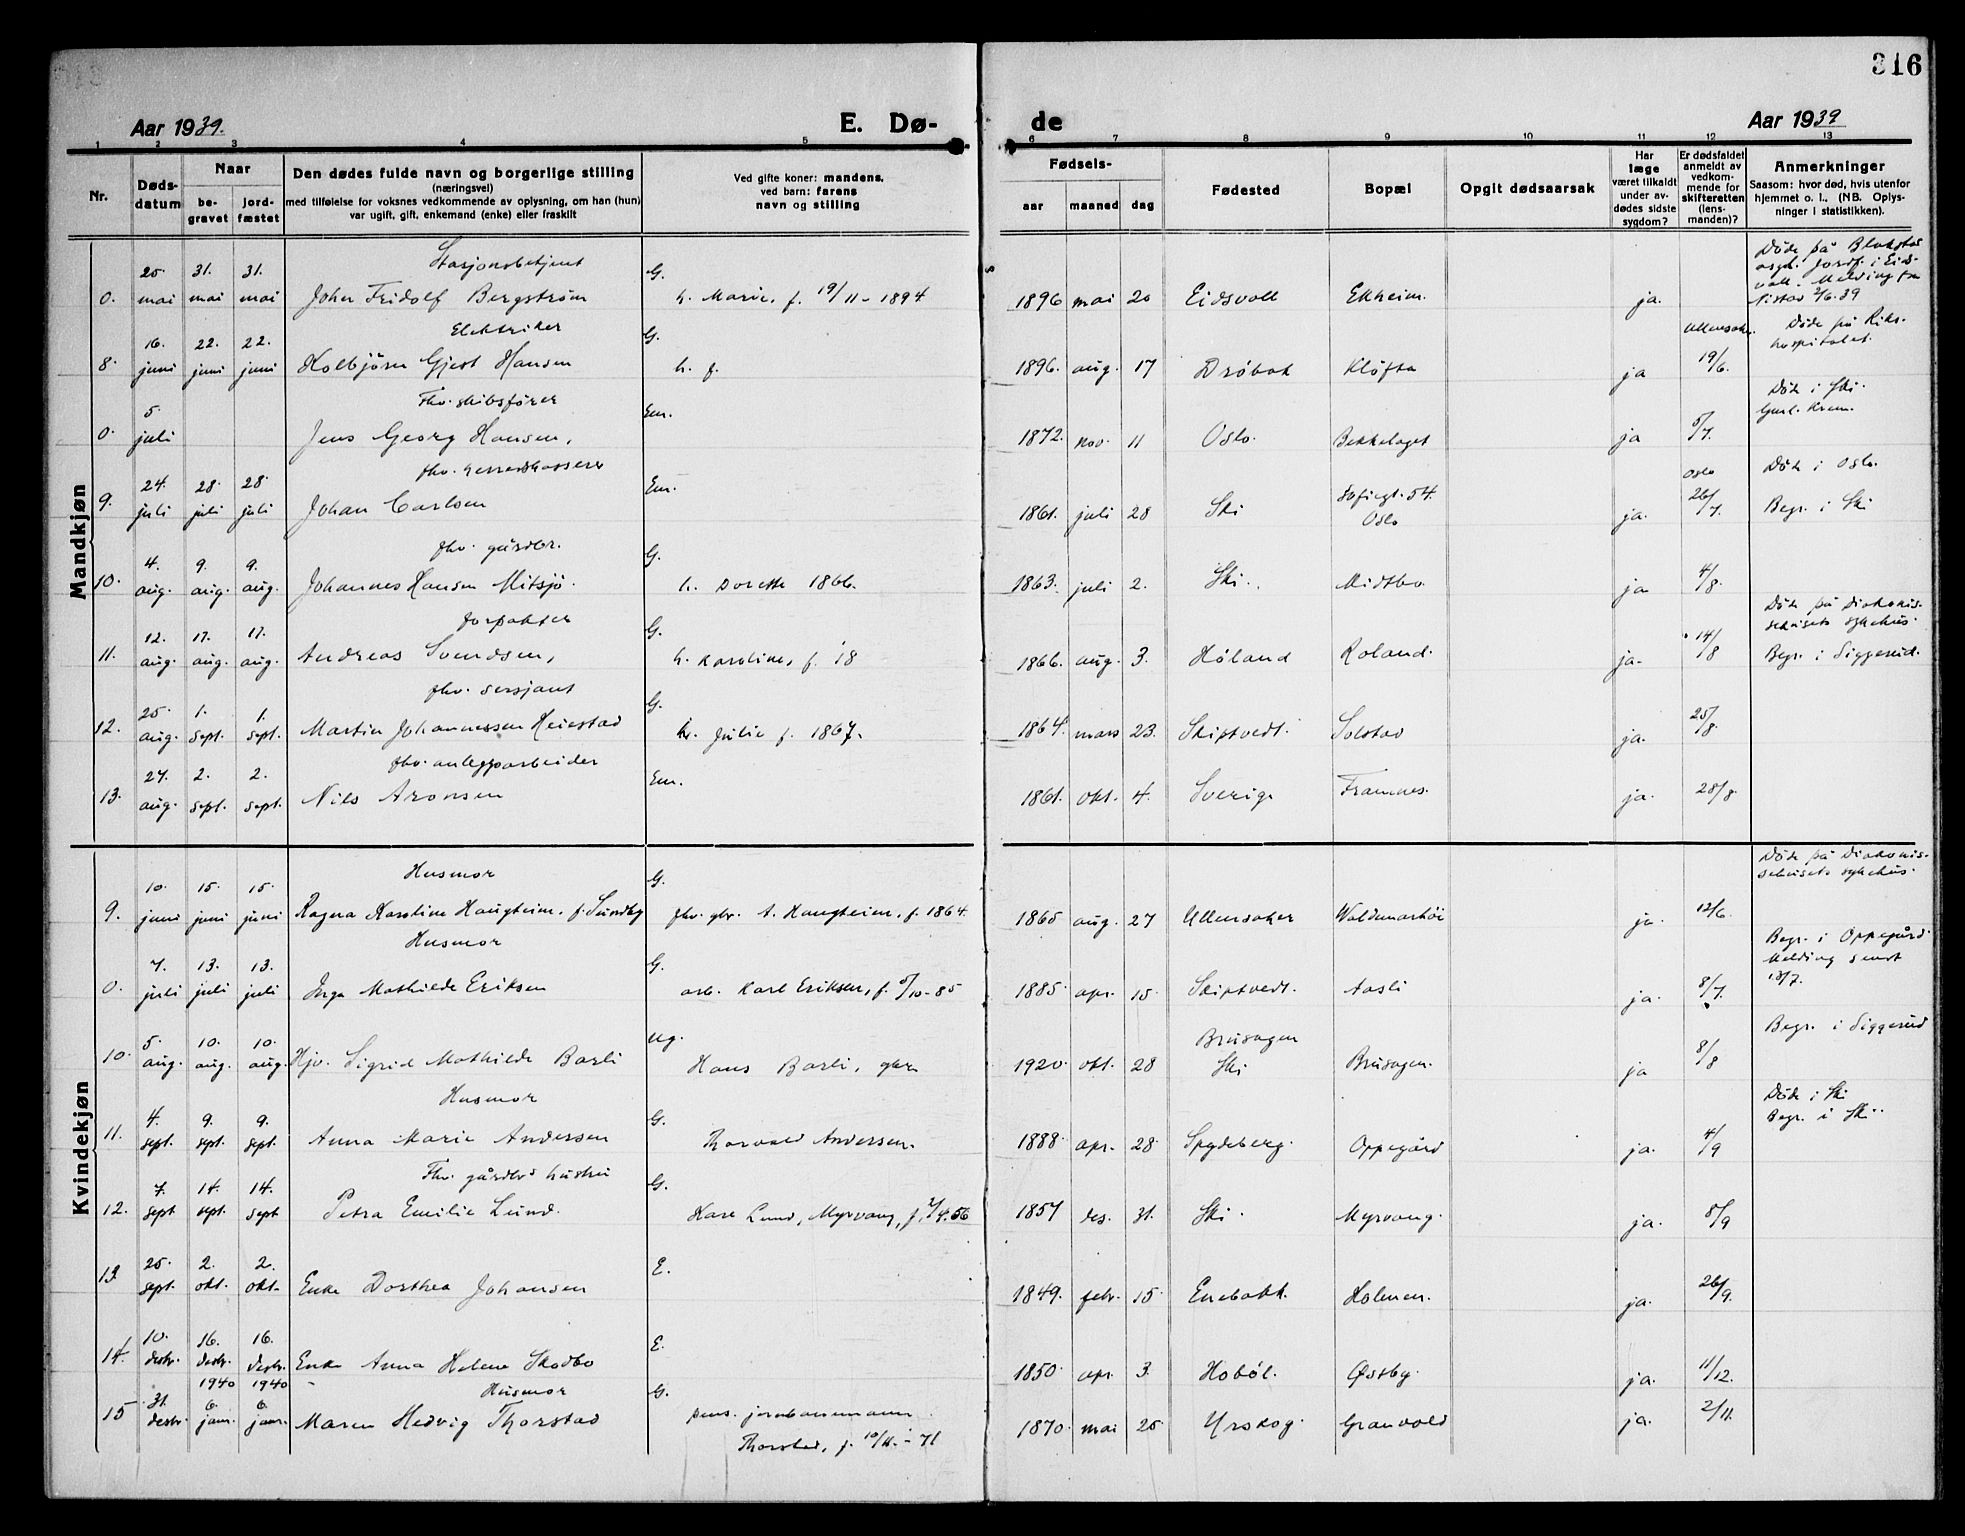 316
Aar 1939.
E. Dø-
de
Aar 1939
1 2 3 4 5 6 7 8 9 10 11 12 13
Nr.
Døds-
datum
Naar
be-
gravet
jord-
fæstet
Den dødes fulde navn og borgerlige stilling
(næringsvei)
med tilføielse for voksnes vedkommende av oplysning, om han (hun)
var ugift, gift, enkemand (enke) eller fraskilt
Ved gifte koner: mandens,
ved barn: farens
navn og stilling
Fødsels-
aar maaned dag
Fødested
Bopæl
Opgit dødsaarsak
Har
læge
været tilkaldt
under av-
dødes sidste
sygdom?
Er dødsfaldet
anmeldt av
vedkom-
mende for
skifteretten
(lens-
manden)?
Anmerkninger
Saasom: hvor død, hvis utenfor
hjemmet o. l., (NB. Oplys-
ninger i statistikken).
Mandkjøn
Stasjonsbetjent
0. 25. mai 31. mai 31. mai Johan Fridolf Bergstrøm G. h. Marie, f. 19/11-1894 1896 mai 20 Eidsvoll Ekheim. ja. Døde på
Jordf. i Eids-
voll. Melding fra
2/6.39
Elektriker
8. 16. juni 22. juni 22. juni Kolbjørn Gjest Hansen G. h. f. 1896. aug. 17 Drøbak Kløfta ja Ullensaker. 19/6. Døde på Riks-
hospitalet.
Fhv. skibsfører
0. 5. juli Jens Georg Hansen, Em. 1872. nov. 11 Oslo. Bekkelaget ja 5/7. Døde i Ski.
Krem.
fhv. herredskasserer
9. 24. juli 28. juli 28. juli Johan Carlsen Em. 1861. juli 28 Ski Sofiegt. 54.
Oslo ja. Oslo 26/7. Døde i Oslo.
Begr. i Ski
fhv. gårdbr.
10. 4. aug. 9. aug. 9. aug. Johannes Hansen Mitsjø. G. h. Dorette 1866. 1863. juli 2. Ski. Midtbo ja 4/8
forpakter
11. 12. aug. 17. aug. 17. aug. Andreas Svendsen, G. h. Karoline, f. 18 1866. aug. 3. Høland Roland. ja. 14/8 Døde på Diakonis-
sehusets sykehus.
Begr. i Siggerud.
fhv. sersjant
12. 25. aug. 1. sept. 1. sept. Martin Johannessen Heiestad G. h. Julie f. 1867. 1864. mars 23. Skiptvedt. Solstad ja. 25/8.
fhv. anleggsarbeider
13. 27. aug. 2. sept. 2. sept. Nils Aronsen Em. 1861. okt. 4. Sverige Framnes. ja. 28/8.
Kvindekjøn
Husmor
9. 10. juni 15. juni 15. juni Ragna Karoline Haugheim, f. Sundby G. fhv. gbr. A. Haugheim, f. 1864. 1865 aug. 27 Ullensaker Waldemarhøi ja. 12/6. Døde på Diakonis-
sehusets sykehus.
Husmor
0. 7. juli 13. juli 13. juli Inga Mathilde Eriksen G. arb. Karl Eriksen, f. 5/10-85 1885 apr. 15. Skiptvedt. Aasli ja. 8/7. Begr. i Oppegård.
Melding sendt
13/7.
10. 5. aug. 10. aug. 10. aug. Hjv. Sigrid Mathilde Barli Ug. Hans Barli, gbr. 1920. okt. 28 Brusagen
Ski Brusagen. ja 8/8 Begr. i Siggerud
Husmor
11. 4. sept. 9. sept. 9. sept. Anna Marie Andersen G. Thorvald Andersen. 1888. apr. 28. Spydeberg. Oppegård ja. 4/9 Døde i Ski
Begr. i Ski.
Fhv. gårdbrs hustru
12. 7. sept 14. sept. 14. sept Petra Emilie Lund. G. Karl Lund, Myrvang, f. 2/4.56 1857 des. 31. Ski. Myrvang. ja. 8/9
13. 25. sept. 2. okt. 2. okt. Enke Dorthea Johansen E. 1849. febr. 15. Enebakk. Holmen. ja. 26/9.
14. 10. desbr. 16. desbr. 16. desbr. Enke Anna Helene Skodbo E. 1850. apr. 3. Hobøl. Østby. ja. 11/12.
1940 1940 Husmor
15 31. desbr. 6. jan. 6. jan. Maren Hedvig Thorstad G. pens. jernbanemann
Thorstad, f. 10/11.-71 1870. mai 25 Urskog Granvold ja. 2/11.